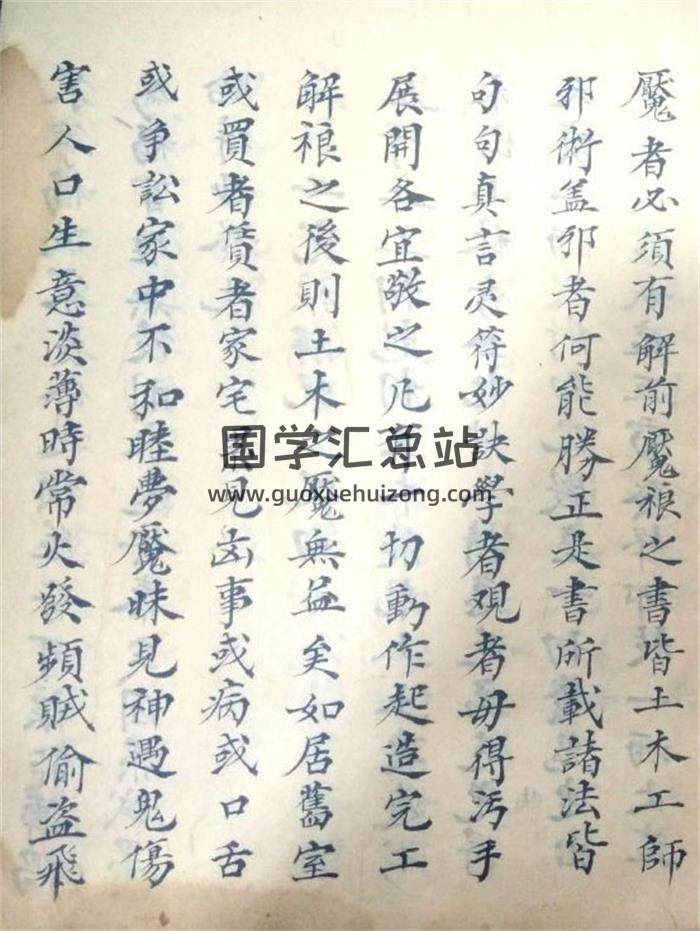 魘者必須有解前魘禳之書皆土木工師
邪術盖邪者何能勝正是書所載諸法皆
句句真言灵符妙訣學者观者毋得污手
展開各宜敬之凡一切動作起造完工
解禳之後則土木之魘無益矣如居舊室
或買者賃者家宅見凶事或病或口舌
或争訟家中不和睦夢魘昧見神遇鬼傷
害人口生意淡薄時常火發頻賊偷盗飛
国学汇总站
www.guoxuehuizong.com